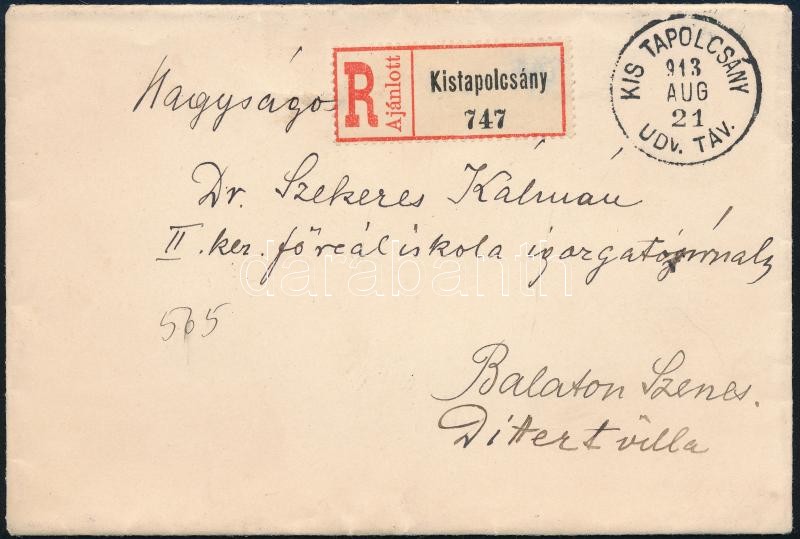 KIS TAPOLCSÁNY
913
AUG
21
UDV. TÁV.
R
Ajánlott
Kistapolcsány
747
Nagyságos
Dr. Szekeres Kálmán
II. ker. főreáliskola igazgatójának
darabanth
565
Balaton Szenes.
Dittert villa